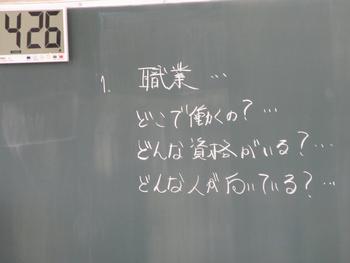 4:26
1. 職業…
どこで働くの?…
どんな資格がいる?…
どんな人が向いている?…